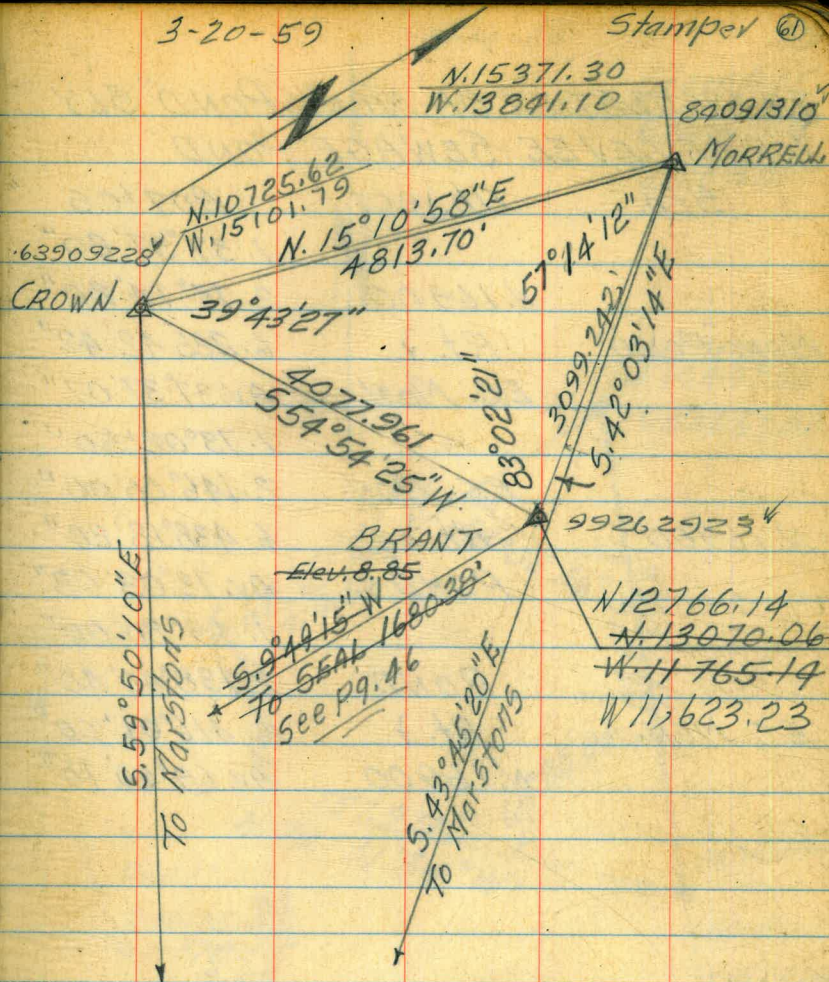 3-20-59
Stamper 61
N.15371.30
W.13841.10
84091310
MORRELL
N.10725.62
W.15101.79
N. 15°10'58"E
4813.70'
.63909228
CROWN
39°43'27"
57°14'12"
3099.242'
S.42°03'14"E
4077.961
S54°54'25"W.
83°02'21"
99262923
BRANT
Elev. 8.85
S.9°49'15" W
To SEAL 1680.38'
See pg. 46
N12766.14
N.13070.06
W.11765.14
W11,623.23
S.59°50'10"E
To Marstons
S.43°45'20"E
To Marstons